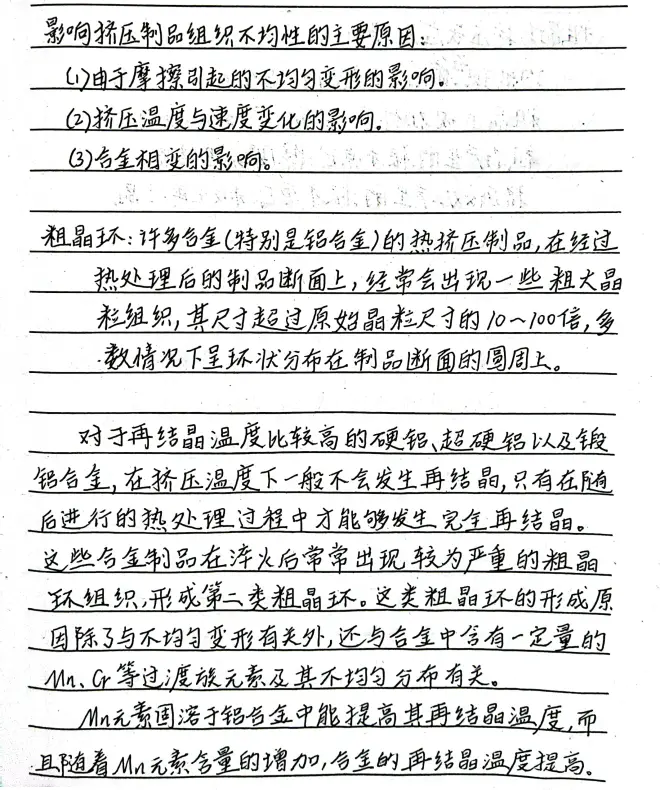 影响挤压制品组织不均性的主要原因：
(1)由于摩擦引起的不均匀变形的影响。
(2)挤压温度与速度变化的影响。
(3)合金相变的影响。
粗晶环：许多合金(特别是铝合金)的热挤压制品,在经过
热处理后的制品断面上,经常会出现一些粗大晶
粒组织,其尺寸超过原始晶粒尺寸的10～100倍,多
数情况下呈环状分布在制品断面的圆周上。
对于再结晶温度比较高的硬铝、超硬铝以及锻
铝合金,在挤压温度下一般不会发生再结晶,只有在随
后进行的热处理过程中才能够发生完全再结晶。
这些合金制品在淬火后常常出现较为严重的粗晶
环组织,形成第二类粗晶环。这类粗晶环的形成原
因除了与不均匀变形有关外,还与合金中含有一定量的
Mn、Cr等过渡族元素及其不均匀分布有关。
Mn元素固溶于铝合金中能提高其再结晶温度,而
且随着Mn元素含量的增加,合金的再结晶温度提高。